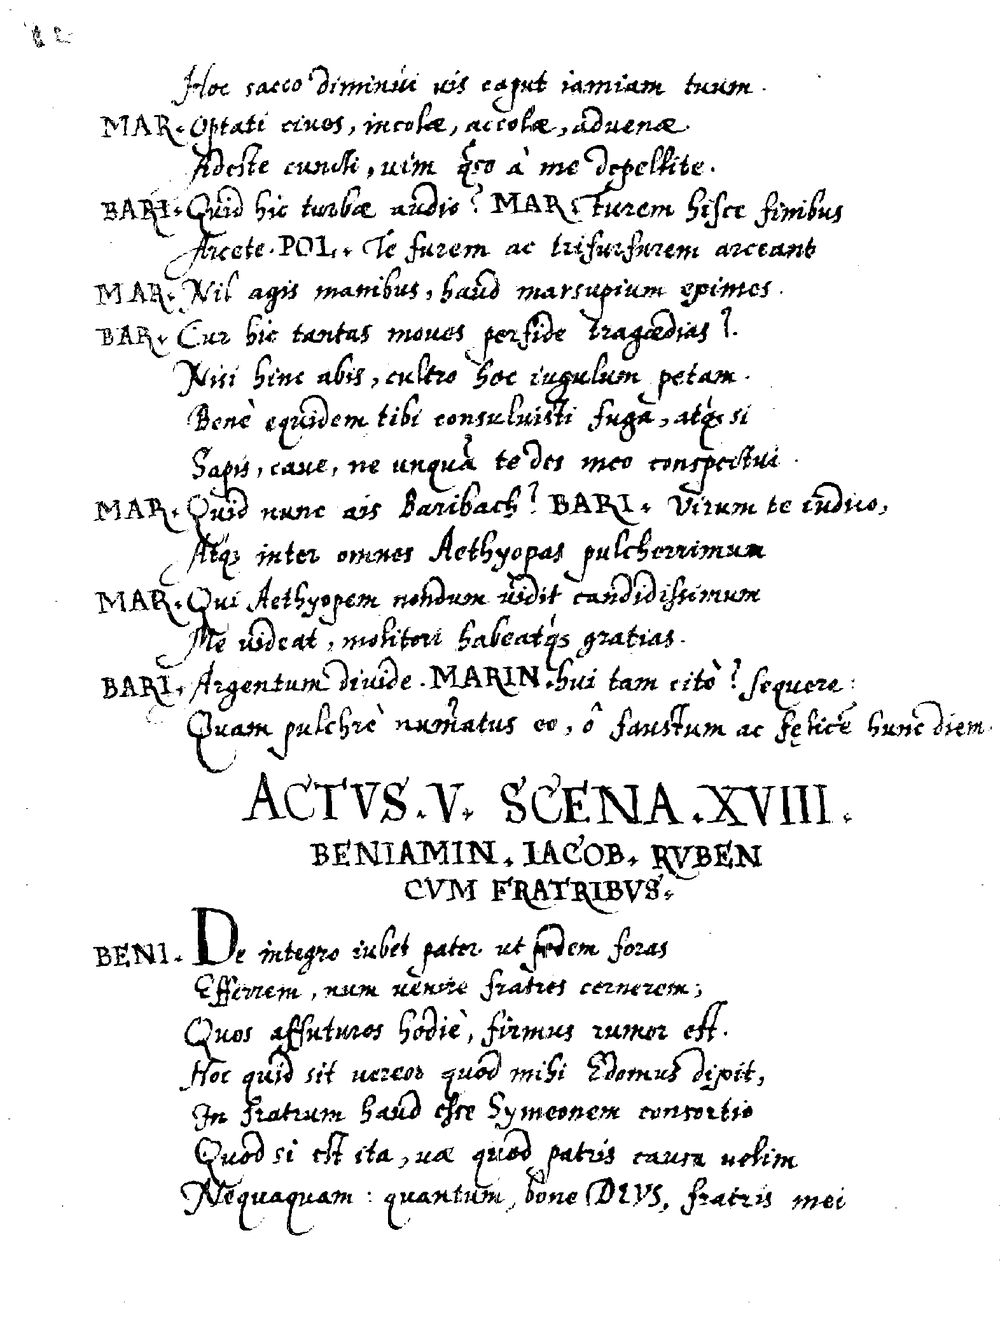 Hoc sacco diminui uis caput iamiam tuum.
MAR. Optati ciues, incolæ, accolæ, aduenæ.
Adeste cuncti, uim q́so à me depellite.
BARI. Quid hic turbæ audio? MAR. Furem hisce finibus
Arcete. POL. Te furem ac trifurfurem arceant
MAR. Nil agis manibus, haud marsupium epimes.
BAR. Cur hic tantas moues perfide tragœdias?
Nisi hinc abis, cultro hoc iugulum petam.
Benè equidem tibi consuluisti fugâ, atq́; si
Sapis, caue, ne unquā te des meo conspectui.
MAR. Quid nunc ais Baribach? BARI. Virum te iudico,
Atq; inter omnes Aethyopas pulcherrimum
MAR. Qui Aethyopem nondum uidit candidissimum
Me uideat, molitori habeatq́; gratias.
BARI. Argentum diuide. MARIN. hui tam citò? sequere:
Quam pulchrè num̄atus eo, ô faustum ac fęlicē hunc diem.
ACTVS. V. SCENA. XVIII.
BENIAMIN. IACOB. RVBEN
CVM FRATRIBVS.
BENI. De integro iubet pater ut pedem foras
Efferrem, num uenire fratres cernerem;
Quos affuturos hodiè, firmus rumor est.
Hoc quid sit uereor quod mihi Edomus dixit,
In fratrum haud esse Symeonem consortio
Quod si est ita, uæ quod patris causa uelim
Nequaquam: quantum, bone DEVS, fratris mei